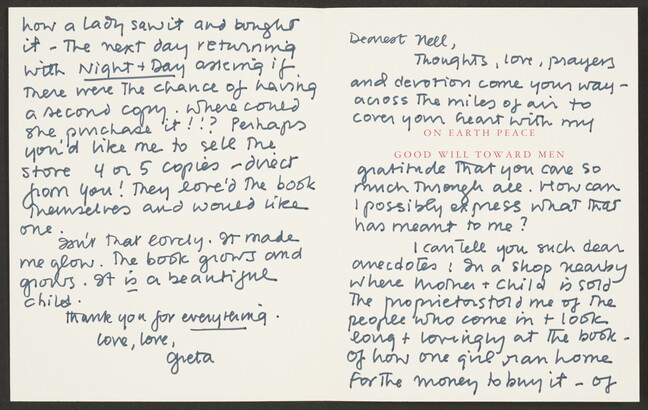 Dearest Nell,
Thoughts, love, prayers
and devotion come your way –
across the miles of air to
cover your heart with my
ON EARTH PEACE
GOOD WILL TOWARD MEN
gratitude that you care so
much through all. How can
I possibly express what that
has meant to me?
I can tell you such dear
anecdotes! In a shop nearby
where Mother + Child is sold
the proprietors told me of the
people who come in + look
long + lovingly at the book –
of how one girl ran home
for the money to buy it – of
how a lady saw it and bought
it – the next day returning
with Night + Day asking if
there were the chance of having
a second copy. Where could
she purchase it!!? Perhaps
you'd like me to sell the
store 4 or 5 copies – direct
from you! They love'd the book
themselves and would like
one.
Isn't that lovely. It made
me glow. The book grows and
grows. It is a beautiful
child.
Thank you for everything.
Love, love,
Greta